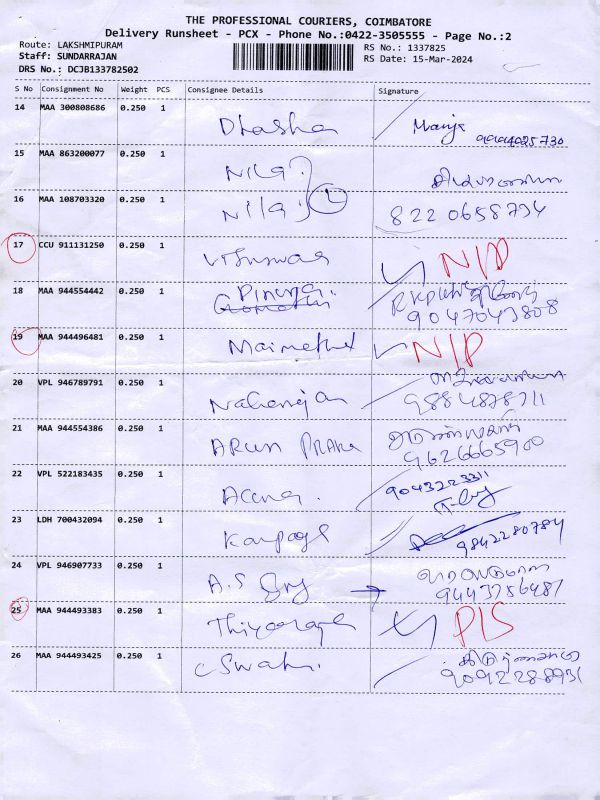 THE PROFESSIONAL COURIERS, COIMBATORE
Delivery Runsheet - PCX - Phone No.:0422-3505555 - Page No.:2
Route: LAKSHMIPURAM RS No.: 1337825
Staff: SUNDARRAJAN RS Date: 15-Mar-2024
DRS No.: DCJB133782502
S No Consignment No Weight PCS Consignee Details Signature
14 MAA 300808686 0.250 1 Dhasha
15 MAA 863200077 0.250 1 Nila
16 MAA 108703320 0.250 1 Nila 8220658734
17 CCU 911131250 0.250 1 N/D
18 MAA 944554442 0.250 1 9047043808
19 MAA 944496481 0.250 1 N/D
20 VPL 946789791 0.250 1 9884878711
21 MAA 944554386 0.250 1 ARUN PRAKA 9626665900
22 VPL 522183435 0.250 1 9043223311
23 LDH 700432094 0.250 1 9842280784
24 VPL 946907733 0.250 1 A.S 9443756487
25 MAA 944493383 0.250 1
26 MAA 944493425 0.250 1 Swathi 9092288931